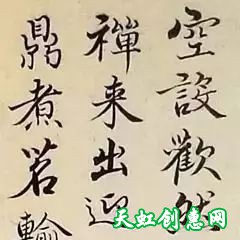 空設歡然
禪来出迎
鼎煮茗輪
天虹创惠网